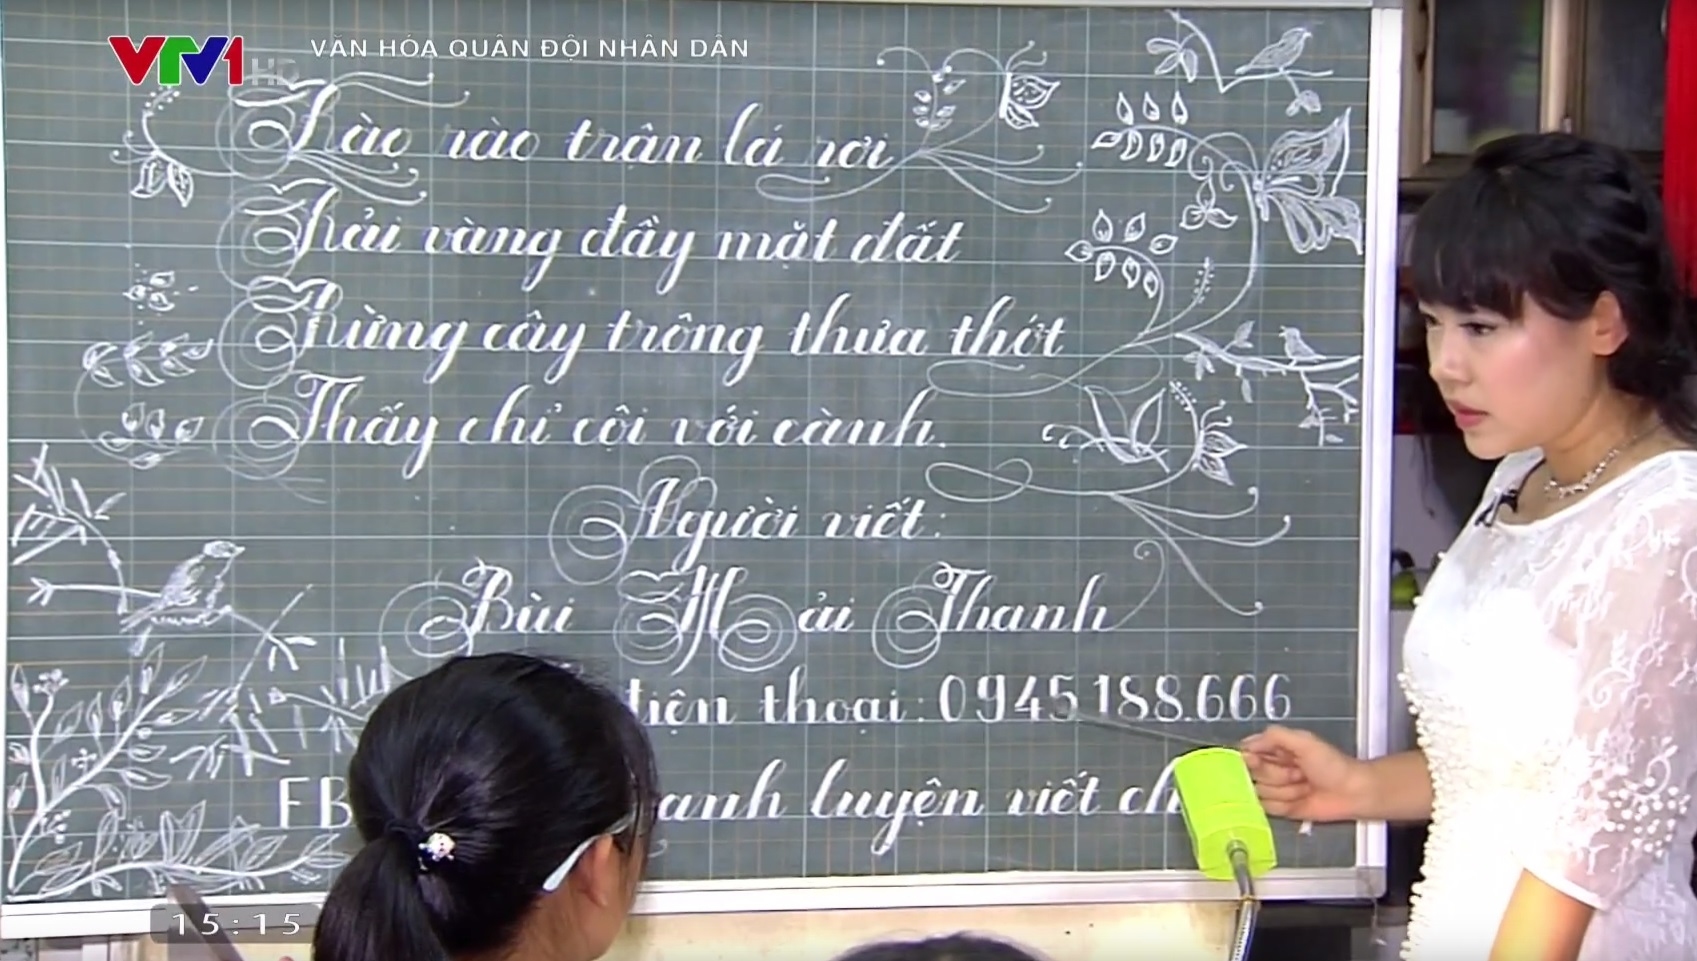 VTV1 HD
VĂN HÓA QUÂN ĐỘI NHÂN DÂN
Rào rào trận lá rơi
Rải vàng đầy mặt đất
Rừng cây trông thưa thớt
Thấy chỉ cội với cành.
Người viết:
Bùi Hải Thanh
điện thoại: 0945.188.666
FB luyện viết
15:15